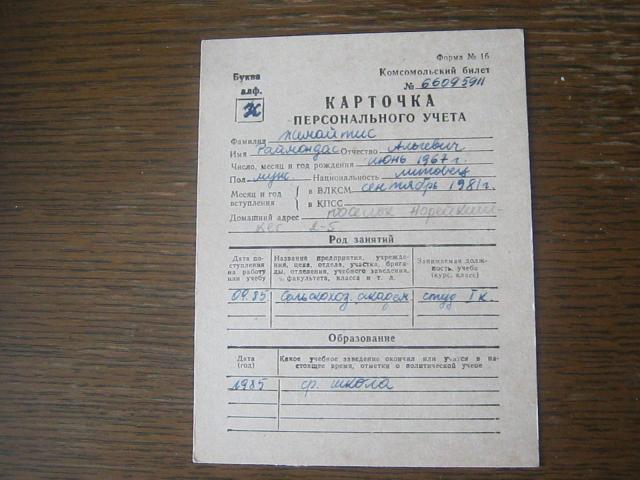 Форма № 16
Буква
алф.
Ж
Комсомольский билет
№ 66095911
КАРТОЧКА
ПЕРСОНАЛЬНОГО УЧЕТА
Фамилия Жемайтис
Имя Раймондас Отчество Альгевич
Число, месяц и год рождения июнь 1967 г.
Пол муж. Национальность литовец
Месяц и год вступления
в ВЛКСМ сентябрь 1981 г.
в КПСС
Домашний адрес поселок
2-5
Род занятий
Дата поступления на работу или учебу
Название предприятия, учреждения, цеха, отдела, участка, бригады, отделения, учебного заведения, факультета, класса и т. д.
Занимаемая должность, учеба (курс, класс)
09.85 Сельскохоз. академ. студ I к.
Образование
Дата (год)
Какое учебное заведение окончил или учится в настоящее время, отметки о политической учебе
1985 ср. школа